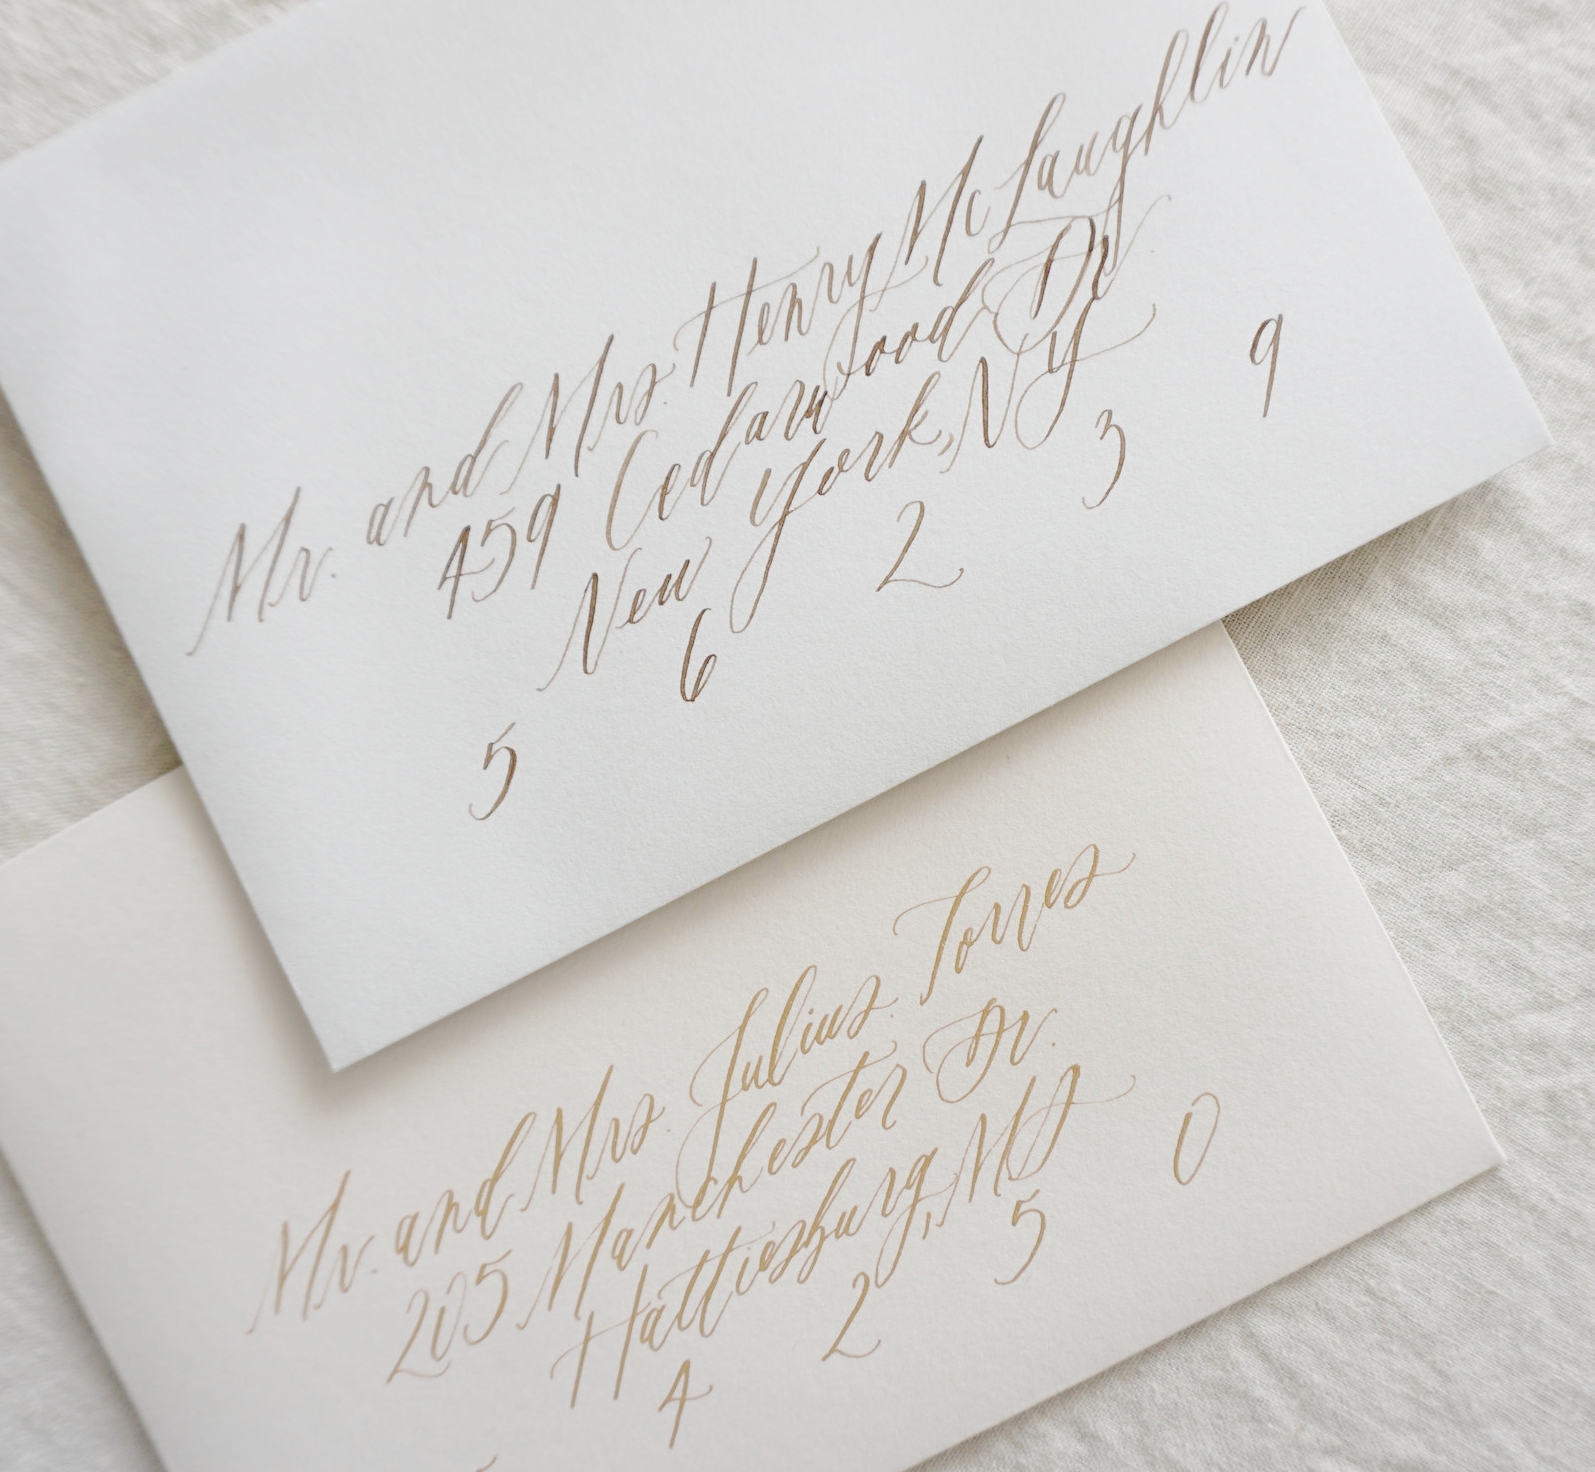 Mr. and Mrs. Henry McLaughlin
459 Cedarwood Dr
New York, NY
5 6 2 3 9
Mr. and Mrs. Julius Torres
205 Manchester Dr.
Hattiesburg, MS
4 2 5 0